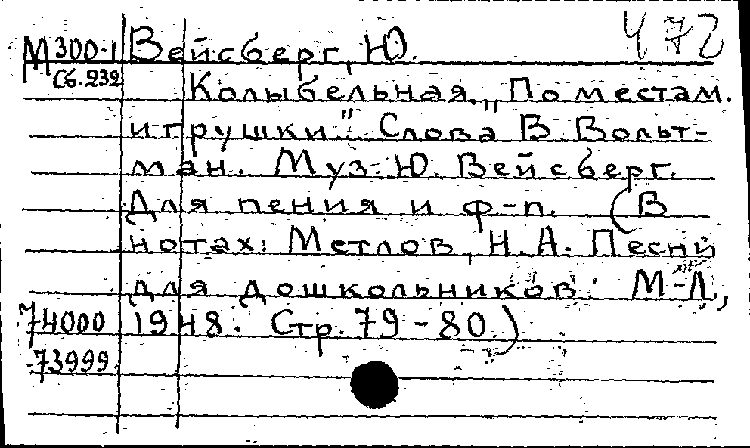 472
М300-1 Вейсберг, Ю.
Сб.232 Колыбельная. „По местам,
игрушки" Слова В. Вольт-
ман. Муз. Ю. Вейсберг.
Для пения и ф-п. (В
нотах: Метлов, Н.А. Песни
для дошкольников. М-Л.,
74000 1948. Стр. 79-80.)
73999